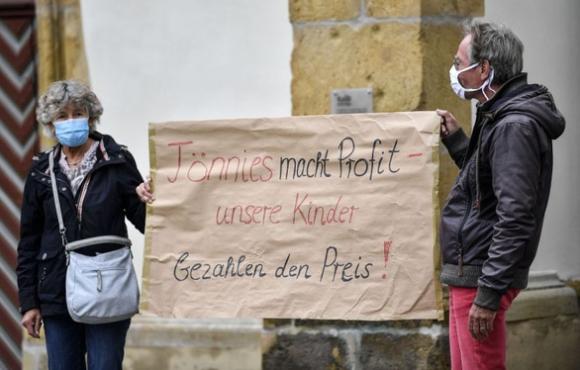 Tönnies macht Profit –
unsere Kinder
Gezahlen den Preis!